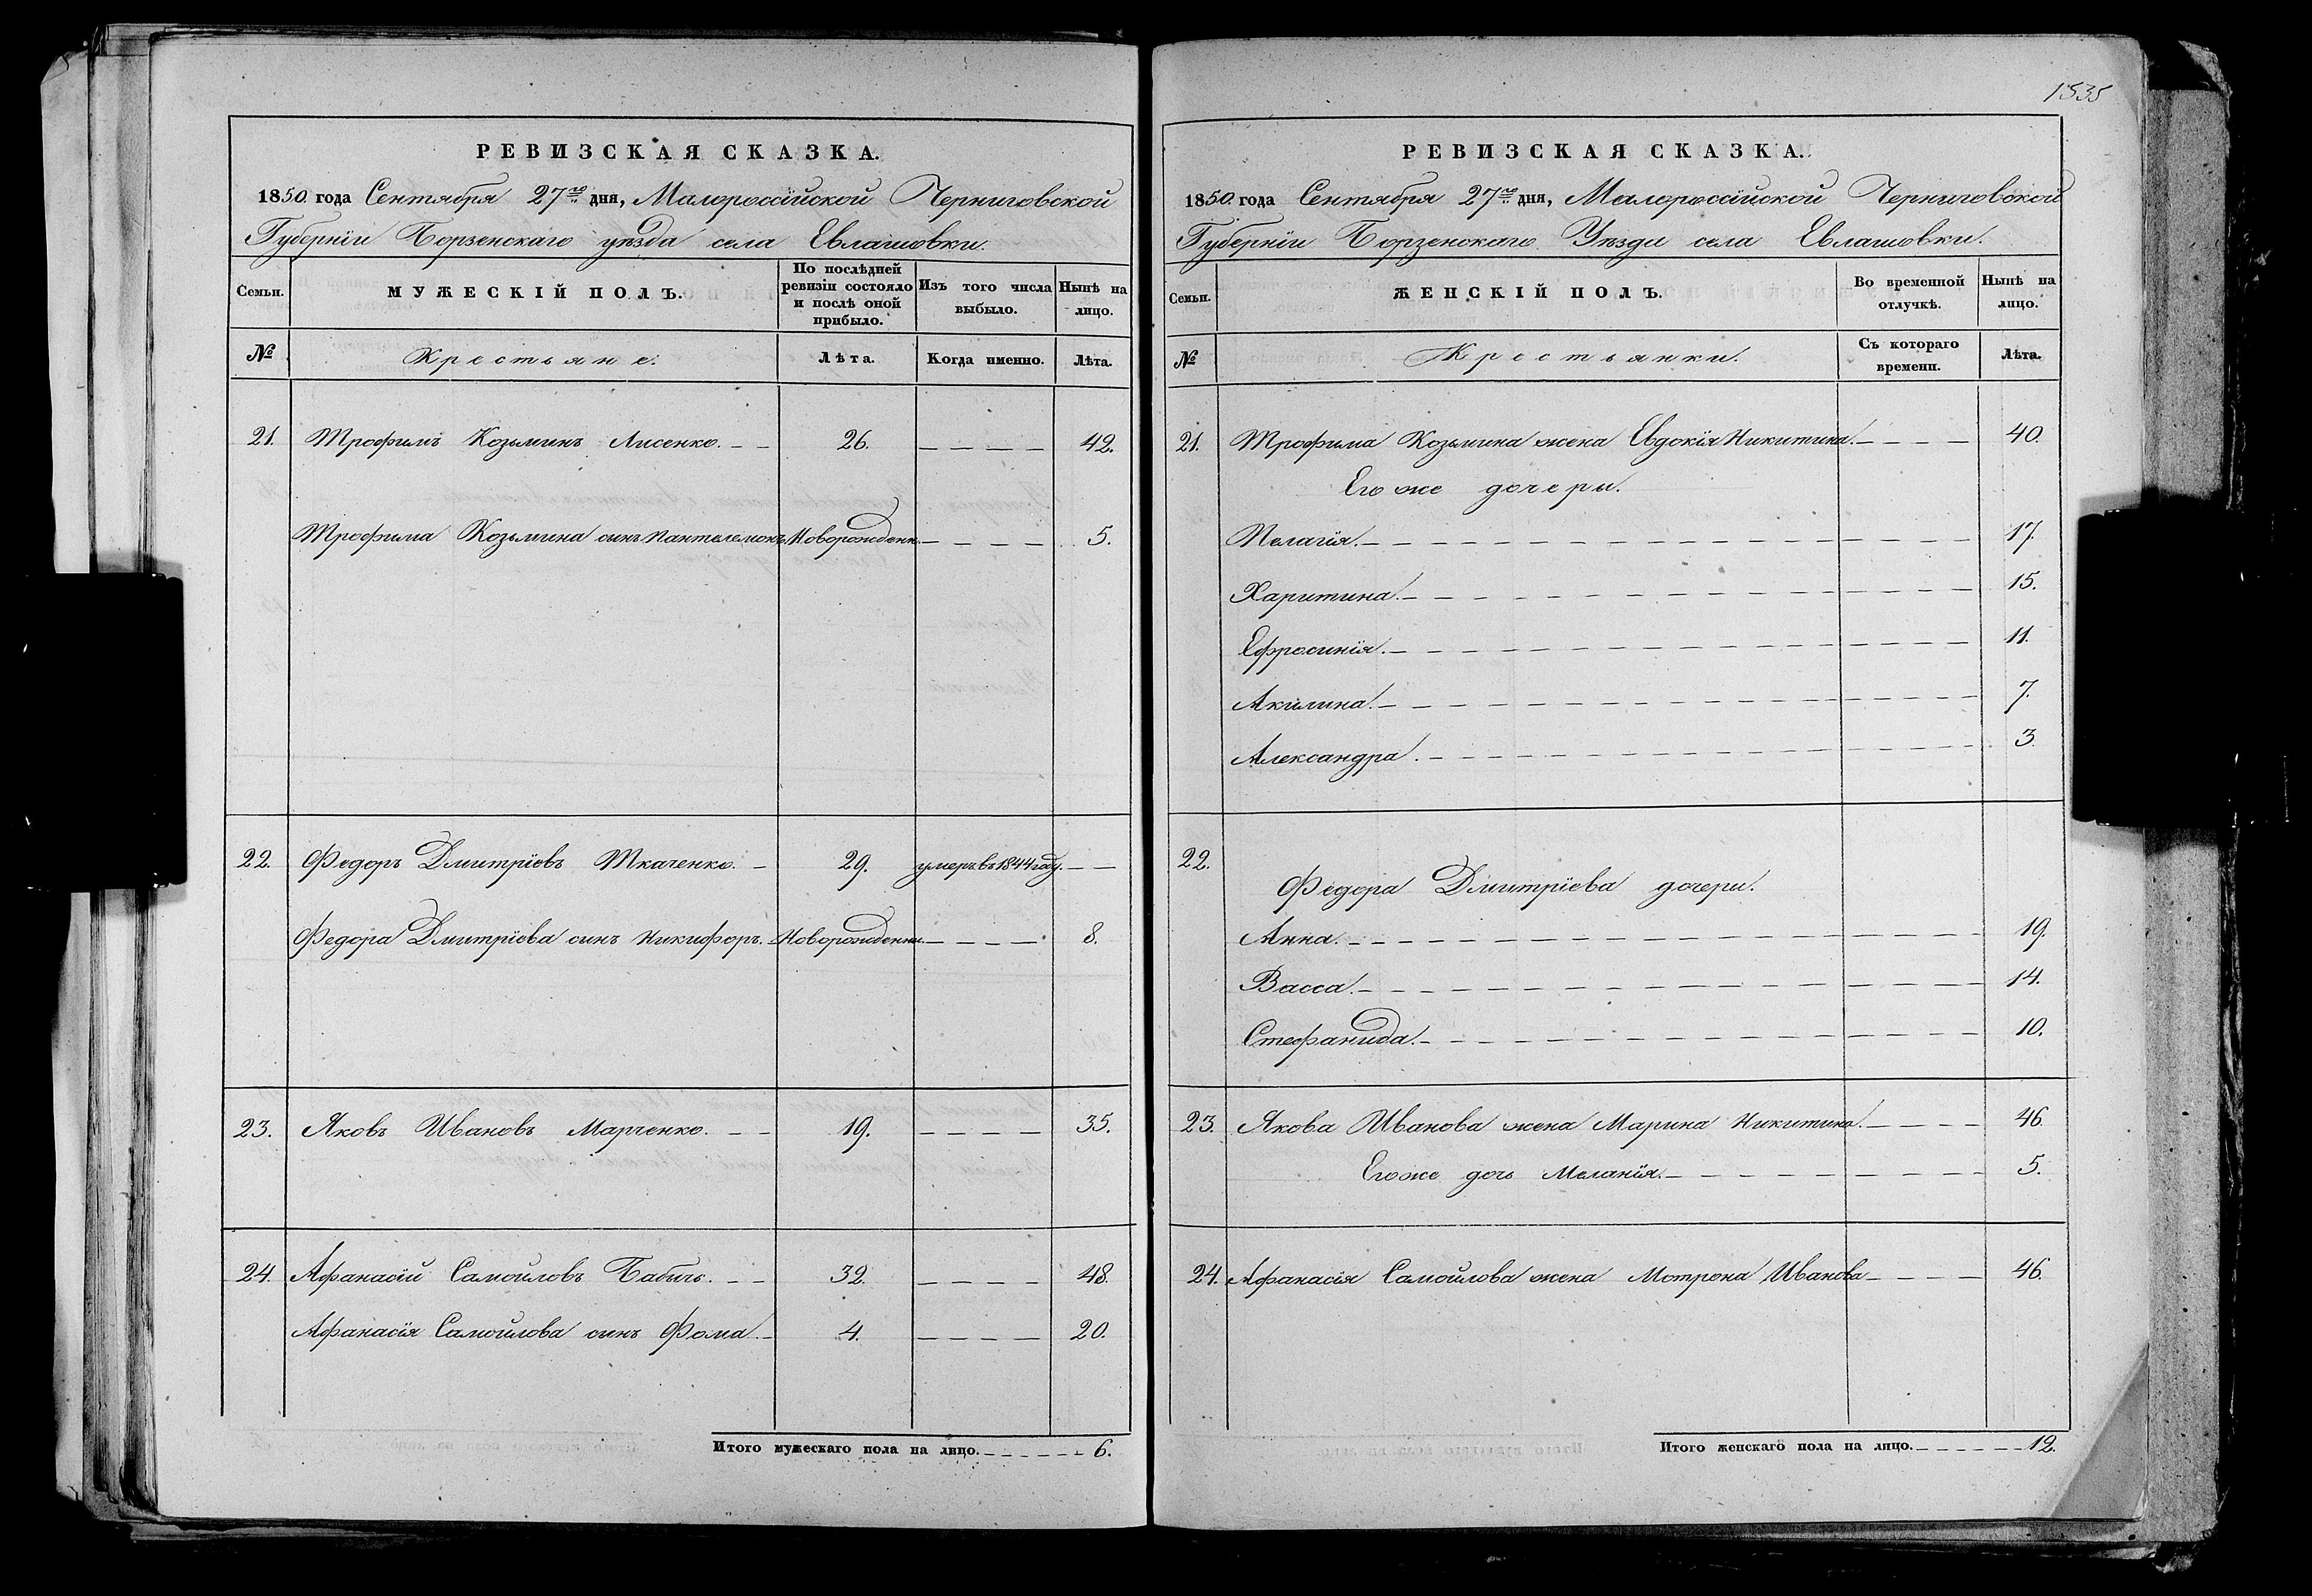 РЕВИЗСКАЯ СКАЗКА.
1850. года Сентября 27го дня, Малороссійской Черниговской
Губерніи Борзенскаго уѣзда села Евлашовки.
Семьи. МУЖЕСКІЙ ПОЛЪ. По послѣдней ревизіи состояло и послѣ оной прибыло. Изъ того числа выбыло. Нынѣ на лицо.
№ Крестьяне. Лѣта. Когда именно. Лѣта.
21. Трофимъ Козьминъ Лисенко. 26. 42.
Трофима Козьмина синъ Пантелемонъ. Новорожденн. 5.
22. Федоръ Дмитріевъ Ткаченко. 29. умеръ въ 1844 году.
Федора Дмитріева синъ Никифоръ. Новорожденн. 8.
23. Яковъ Ивановъ Марченко. 19. 35.
24. Афанасій Самойловъ Бабичь. 32. 48.
Афанасія Самойлова синъ Фома. 4. 20.
Итого мужескаго пола на лицо. 6.
1535
РЕВИЗСКАЯ СКАЗКА.
1850. года Сентября 27го дня, Малороссійской Черниговской
Губерніи Борзенскаго Уѣзда села Евлашовки.
Семьи. ЖЕНСКІЙ ПОЛЪ. Во временной отлучкѣ. Нынѣ на лицо.
№ Крестьянки. Съ котораго времени. Лѣта.
21. Трофима Козьмина жена Евдокія Никитина. 40.
Его же дочери.
Пелагія. 17.
Харитина. 15.
Ефросинія. 11.
Акилина. 7.
Александра. 3.
22.
Федора Дмитріева дочери.
Анна. 19.
Васса. 14.
Стефанида. 10.
23. Якова Иванова жена Марина Никитина. 46.
Его же дочь Меланія. 5.
24. Афанасія Самойлова жена Мотрона Иванова 46.
Итого женскаго пола на лицо. 12.